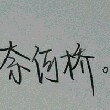 奈何桥。